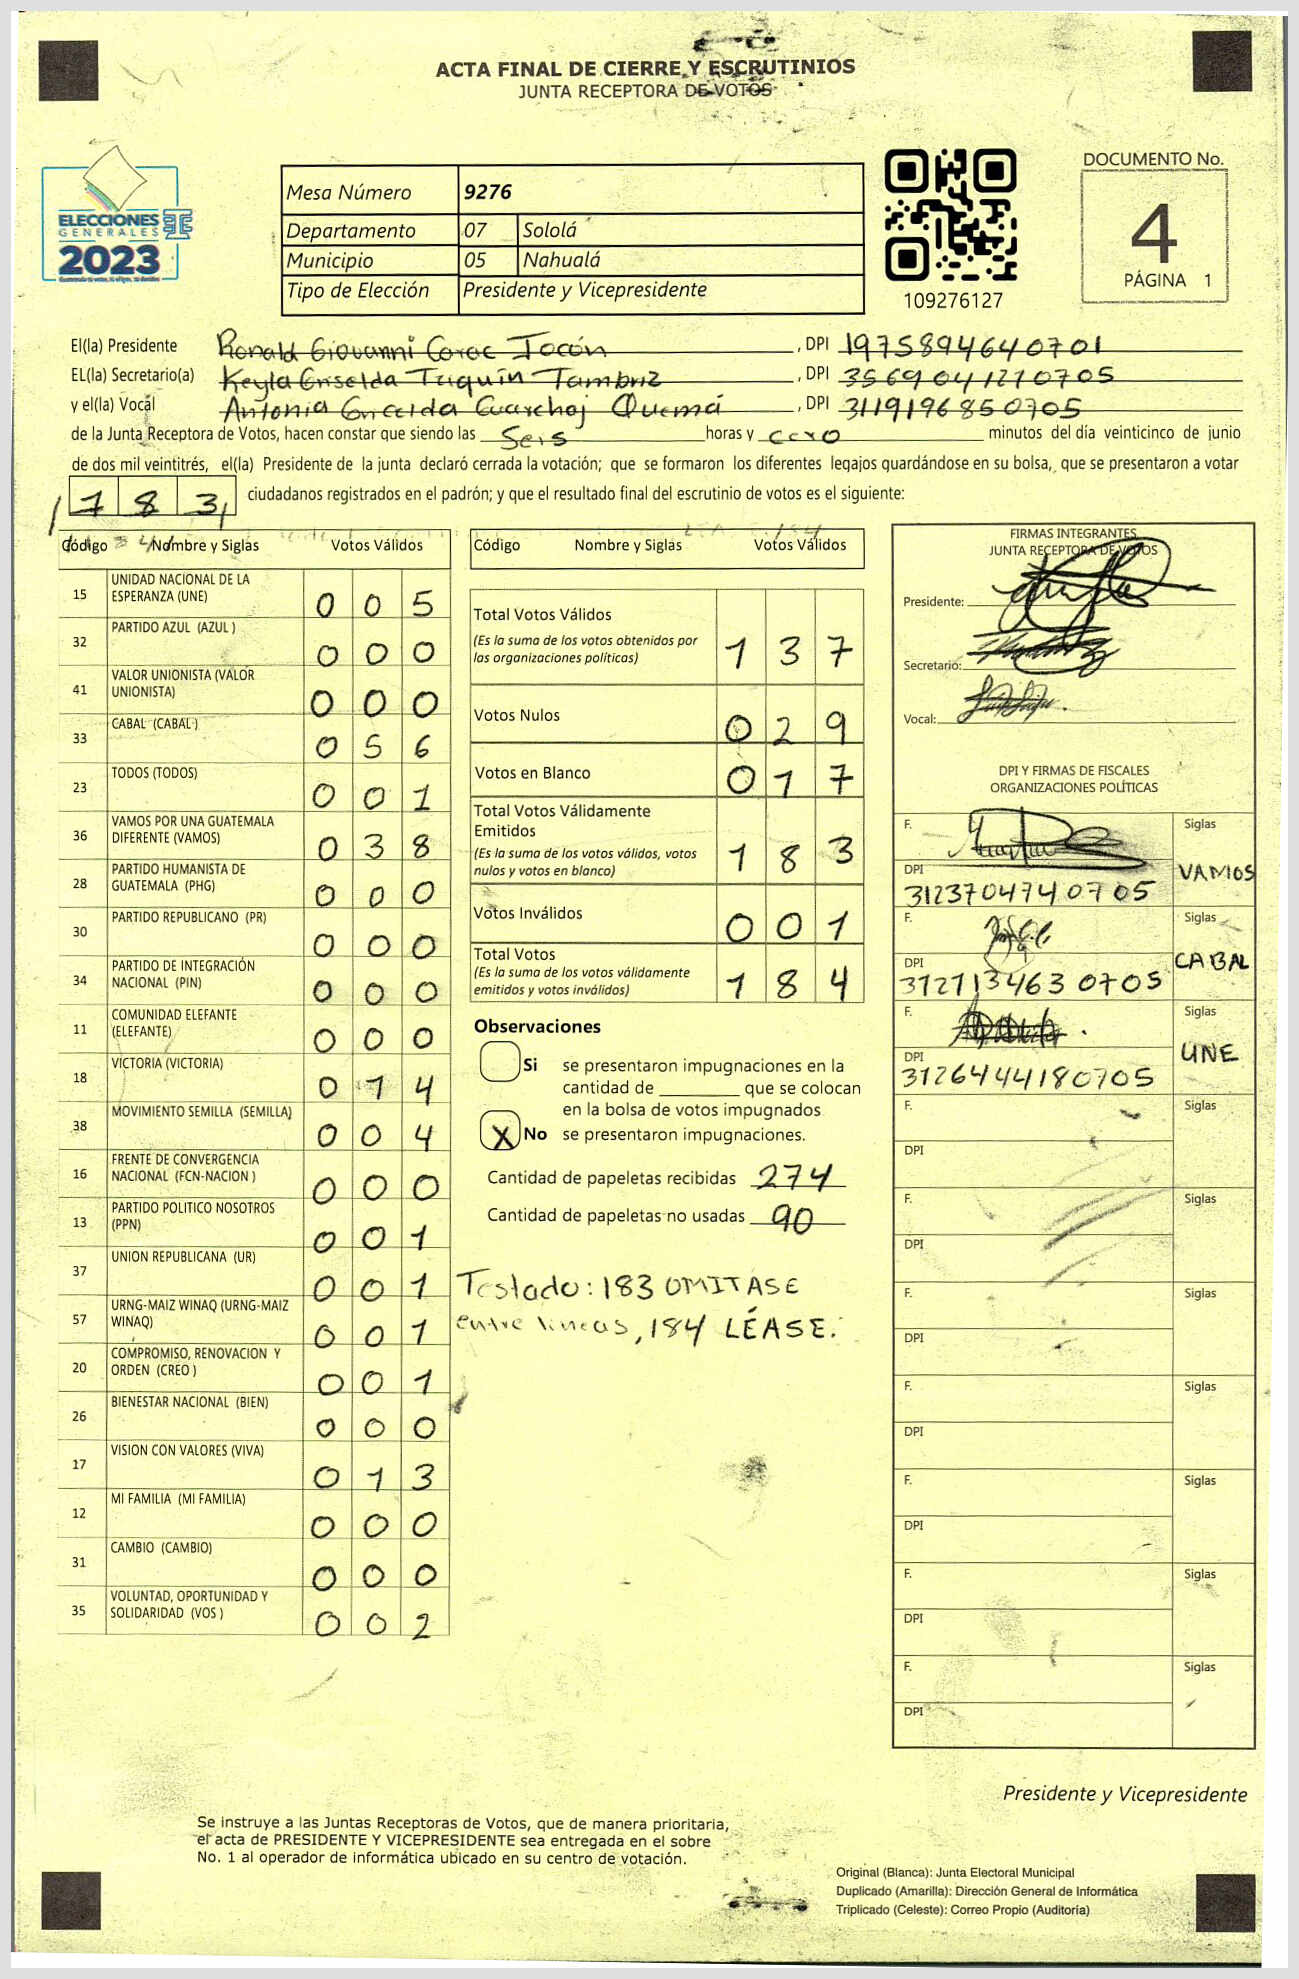 ACTA FINAL DE CIERRE Y ESCRUTINIOS
JUNTA RECEPTORA DE VOTOS
ELECCIONES
GENERALES
2023
Mesa Número 9276
Departamento 07 Sololá
Municipio 05 Nahualá
Tipo de Elección Presidente y Vicepresidente
109276127
DOCUMENTO No.
4
PÁGINA 1
El(la) Presidente Ronald Giovanni Coroc Tocón , DPI 1975894640701
EL(la) Secretario(a) Keyla Griselda Tuquin Tambriz , DPI 3569041270705
y el(la) Vocal Antonia Griselda Guarchaj Quemá , DPI 3119196850705
de la Junta Receptora de Votos, hacen constar que siendo las Seis horas y cero minutos del día veinticinco de junio
de dos mil veintitrés, el(la) Presidente de la junta declaró cerrada la votación; que se formaron los diferentes legajos guardándose en su bolsa, que se presentaron a votar
183 ciudadanos registrados en el padrón; y que el resultado final del escrutinio de votos es el siguiente:
Código Nombre y Siglas Votos Válidos
15 UNIDAD NACIONAL DE LA ESPERANZA (UNE) 0 0 5
32 PARTIDO AZUL (AZUL ) 0 0 0
41 VALOR UNIONISTA (VALOR UNIONISTA) 0 0 0
33 CABAL (CABAL ) 0 5 6
23 TODOS (TODOS) 0 0 1
36 VAMOS POR UNA GUATEMALA DIFERENTE (VAMOS) 0 3 8
28 PARTIDO HUMANISTA DE GUATEMALA (PHG) 0 0 0
30 PARTIDO REPUBLICANO (PR) 0 0 0
34 PARTIDO DE INTEGRACIÓN NACIONAL (PIN) 0 0 0
11 COMUNIDAD ELEFANTE (ELEFANTE) 0 0 0
18 VICTORIA (VICTORIA) 0 1 4
38 MOVIMIENTO SEMILLA (SEMILLA) 0 0 4
16 FRENTE DE CONVERGENCIA NACIONAL (FCN-NACION ) 0 0 0
13 PARTIDO POLITICO NOSOTROS (PPN) 0 0 1
37 UNION REPUBLICANA (UR) 0 0 1
57 URNG-MAIZ WINAQ (URNG-MAIZ WINAQ) 0 0 1
20 COMPROMISO, RENOVACION Y ORDEN (CREO ) 0 0 1
26 BIENESTAR NACIONAL (BIEN) 0 0 0
17 VISION CON VALORES (VIVA) 0 1 3
12 MI FAMILIA (MI FAMILIA) 0 0 0
31 CAMBIO (CAMBIO) 0 0 0
35 VOLUNTAD, OPORTUNIDAD Y SOLIDARIDAD (VOS ) 0 0 2
Código Nombre y Siglas Votos Válidos
Total Votos Válidos 1 3 7
(Es la suma de los votos obtenidos por
las organizaciones políticas)
Votos Nulos 0 2 9
Votos en Blanco 0 1 7
Total Votos Válidamente
Emitidos 1 8 3
(Es la suma de los votos válidos, votos
nulos y votos en blanco)
Votos Inválidos 0 0 1
Total Votos 1 8 4
(Es la suma de los votos válidamente
emitidos y votos inválidos)
Observaciones
Si se presentaron impugnaciones en la
cantidad de ________ que se colocan
en la bolsa de votos impugnados
X No se presentaron impugnaciones.
Cantidad de papeletas recibidas 274
Cantidad de papeletas no usadas 90
Testado: 183 OMITASE
entre lineas, 184 LÉASE.
FIRMAS INTEGRANTES
JUNTA RECEPTORA DE VOTOS
Presidente:
Secretario:
Vocal:
DPI Y FIRMAS DE FISCALES
ORGANIZACIONES POLÍTICAS
F. Siglas
DPI VAMOS
3123704740705
F. Siglas
DPI CABAL
3121134630705
F. Siglas
DPI UNE
3126444180705
F. Siglas
DPI
F. Siglas
DPI
F. Siglas
DPI
F. Siglas
DPI
F. Siglas
DPI
F. Siglas
DPI
F. Siglas
DPI
Presidente y Vicepresidente
Se instruye a las Juntas Receptoras de Votos, que de manera prioritaria,
el acta de PRESIDENTE Y VICEPRESIDENTE sea entregada en el sobre
No. 1 al operador de informática ubicado en su centro de votación.
Original (Blanca): Junta Electoral Municipal
Duplicado (Amarilla): Dirección General de Informática
Triplicado (Celeste): Correo Propio (Auditoría)